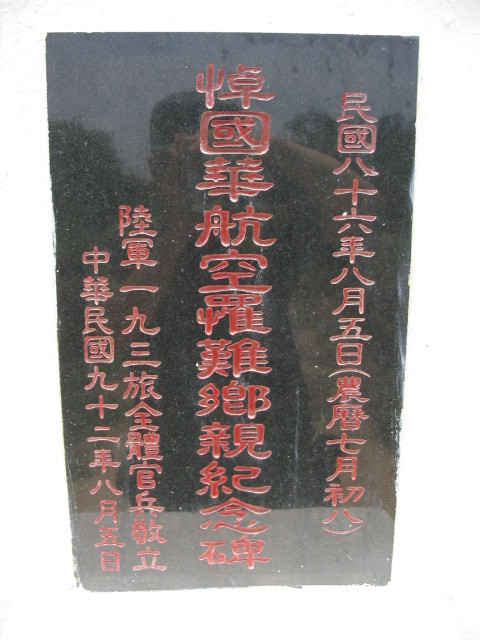 民國八十六年八月五日(農曆七月初八)
悼國華航空罹難鄉親紀念碑
陸軍一九三旅全體官兵敬立
中華民國九十二年八月五日